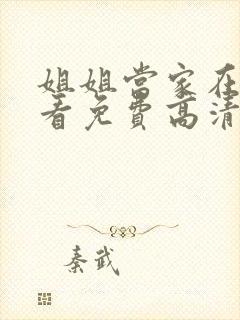 姐姐當家在
看免費高清
秦武